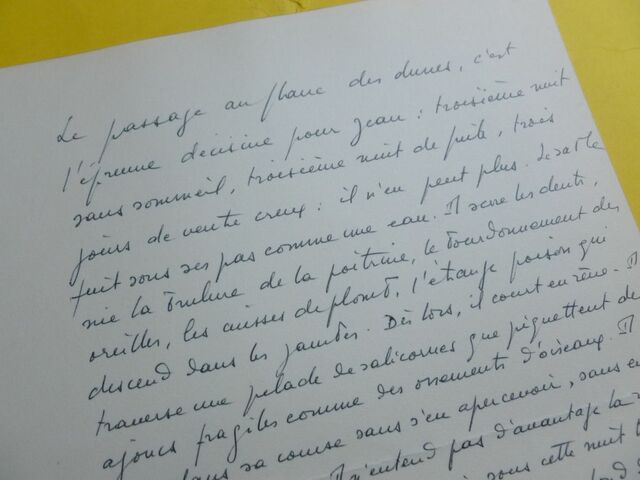 Le passage au flanc des dunes, c'est
l'épreuve décisive pour Jean : troisième nuit
sans sommeil, troisième nuit de fuite, trois
jours de ventre creux : il n'en peut plus. Le sable
fuit sous ses pas comme une eau. Il serre les dents,
nie la brûlure de la poitrine, le bourdonnement des
oreilles, les cuisses de plomb, l'étrange poison qui
descend dans les jambes. Dès lors, il court en rêve. Il
traverse une pelade de salicornes que piquettent des
ajoncs fragiles comme des ossements d'oiseaux. Il
dans sa course sans s'en apercevoir, sans
n'entend pas d'avantage la
sous cette nuit